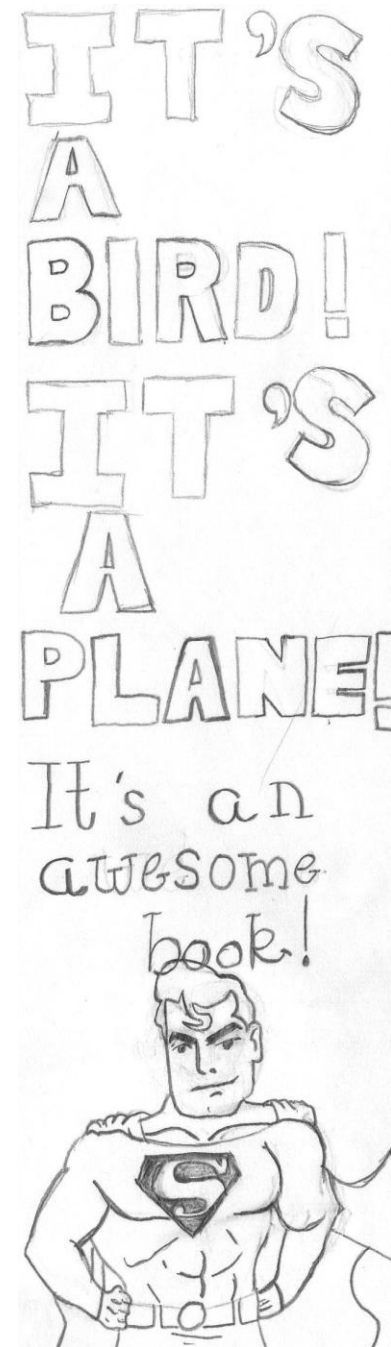 IT'S
A
BIRD!
IT'S
A
PLANE!
It's an
awesome
book!
S